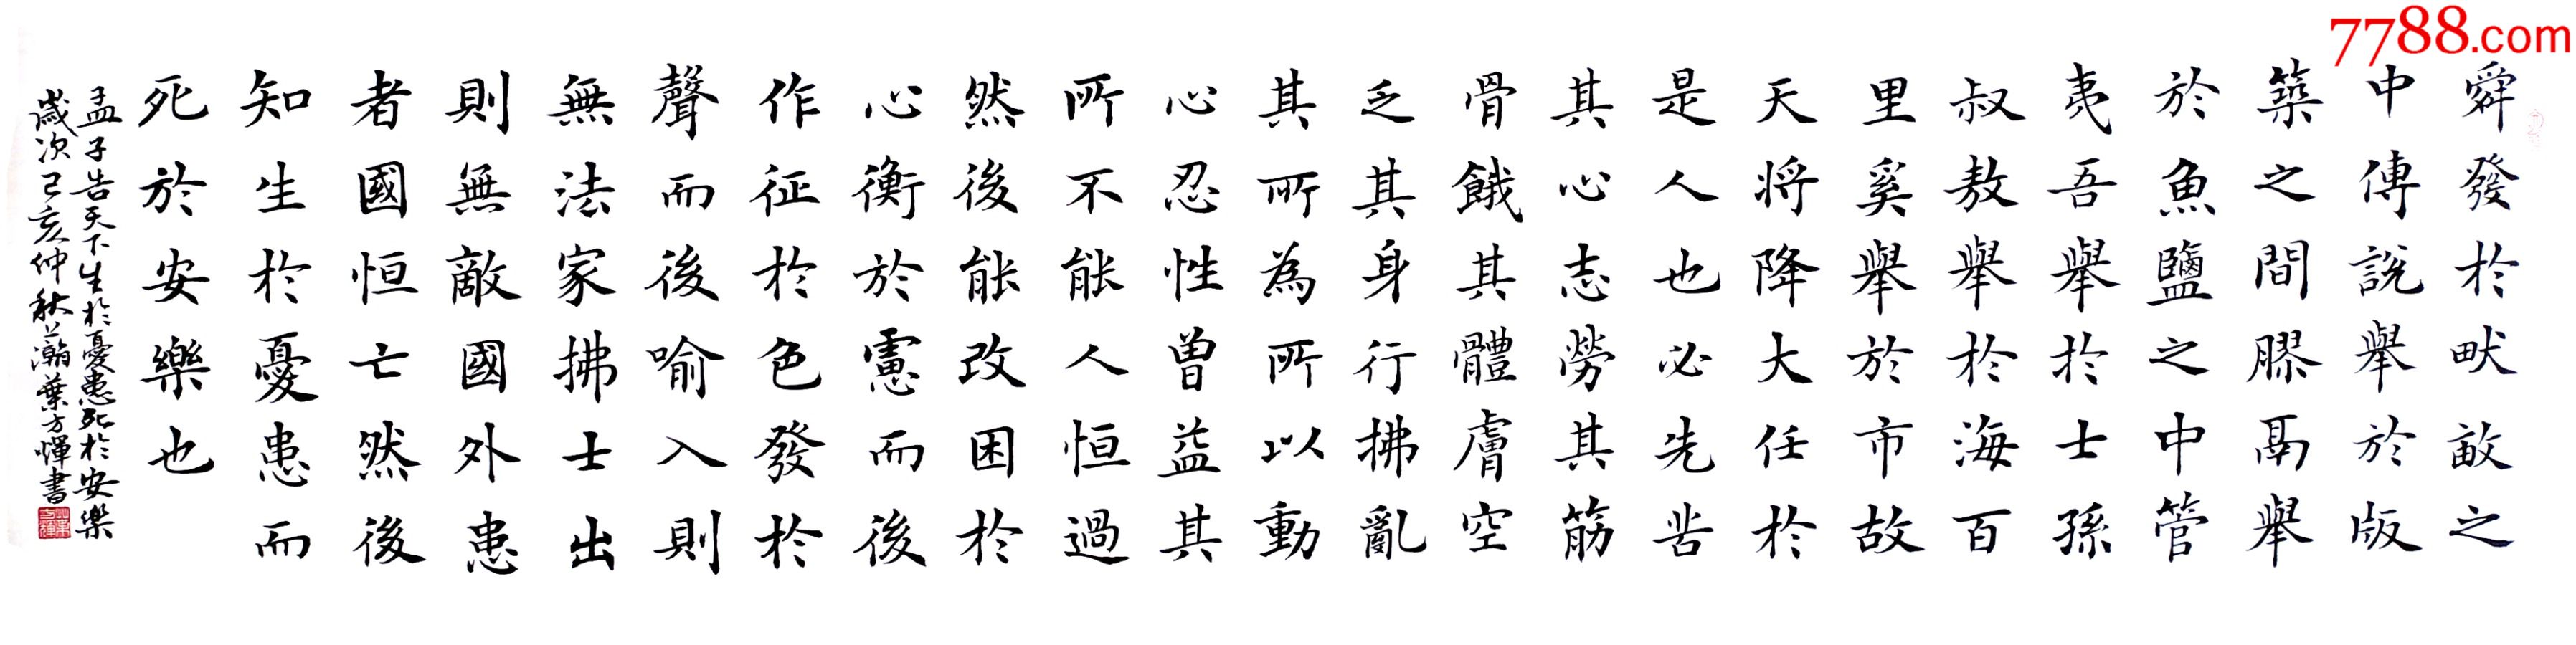 7788.com
舜發於畎畝之
中傅說舉於版
築之間膠鬲舉
於魚鹽之中管
夷吾舉於士孫
叔敖舉於海百
里奚舉於市故
天將降大任於
是人也必先苦
其心志勞其筋
骨餓其體膚空
乏其身行拂亂
其所為所以動
心忍性曾益其
所不能人恒過
然後能改困於
心衡於慮而後
作征於色發於
聲而後喻入則
無法家拂士出
則無敵國外患
者國恒亡然後
知生於憂患而
死於安樂也
孟子告天下生於憂患死於安樂
歲次己亥仲秋瀚葉方惲書